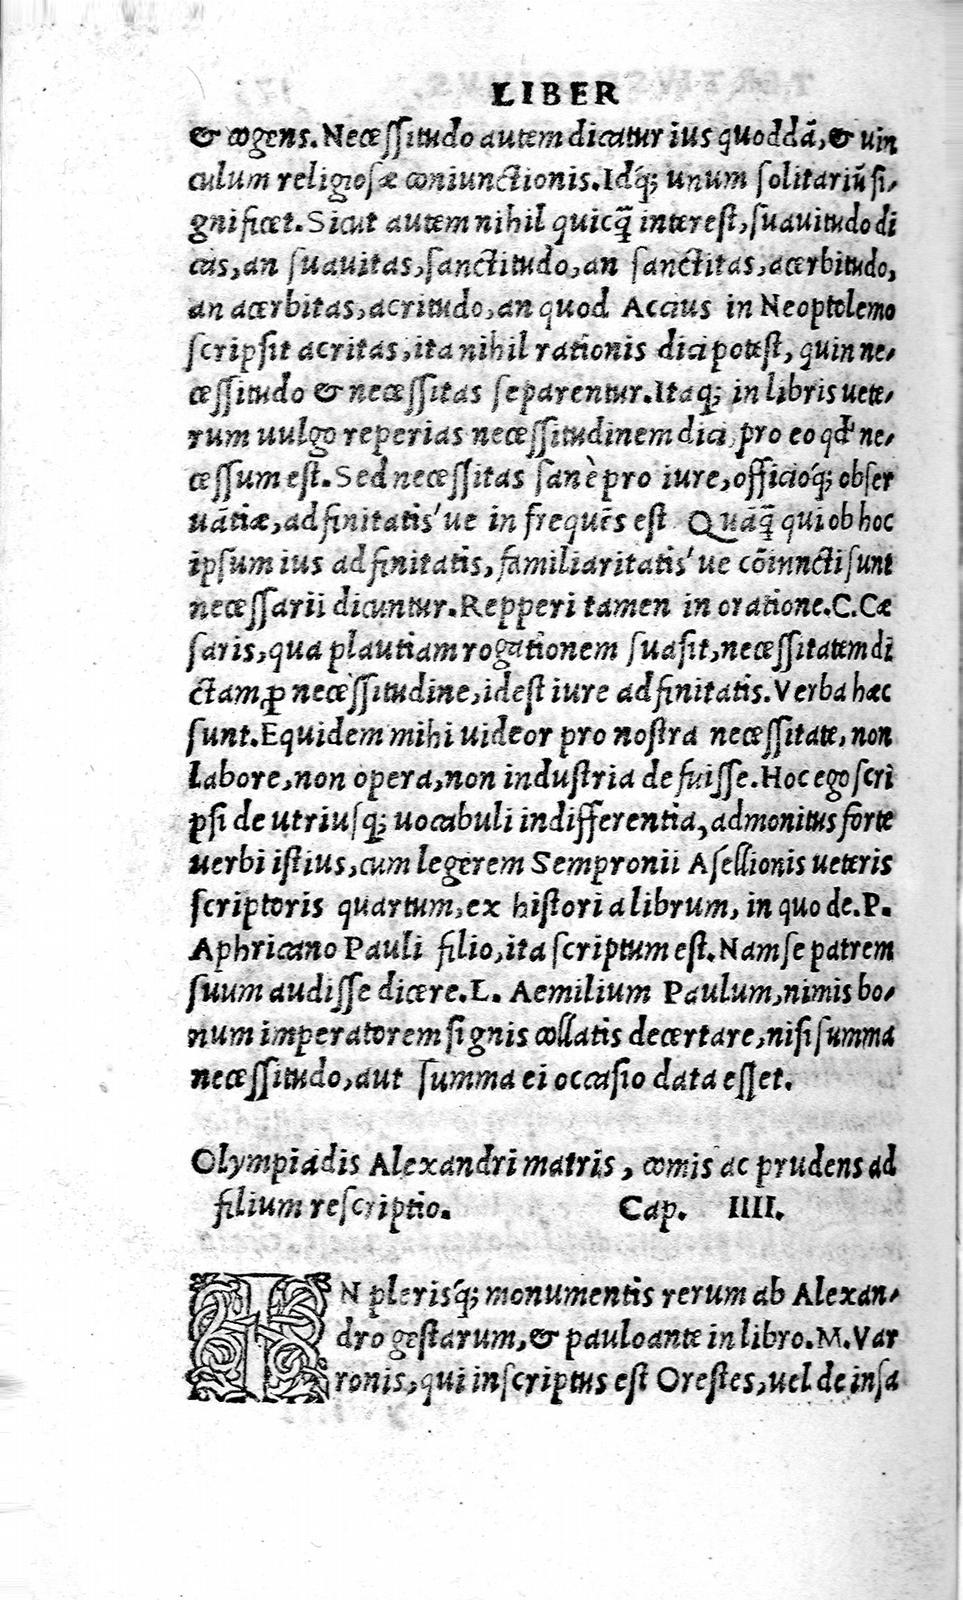 LIBER
& cogens. Necessitudo autem dicatur ius quoddā, & uin
culum religiosæ coniunctionis. Idq́; unum solitariū si,
gnificet. Sicut autem nihil quicq̄ interest, suauitudo di
cas, an suauitas, sanctitudo, an sanctitas, acerbitudo,
an acerbitas, acritudo, an quod Accius in Neoptolemo
scripsit acritas, ita nihil rationis dici potest, quin ne,
cessitudo & necessitas separentur. Itaq; in libris uete,
rum uulgo reperias necessitudinem dici, pro eo qđ ne,
cessum est. Sed necessitas sanè pro iure, officioq́; obser
uātiæ, adfinitatis'ue in frequēs est Quāq̄ qui ob hoc
ipsum ius adfinitatis, familiaritatis'ue cōiuncti sunt
necessarii dicuntur. Repperi tamen in oratione. C. Cæ
saris, qua plautiam rogationem suasit, necessitatem di
ctam, ꝓ necessitudine, idest iure adfinitatis. Verba hæc
sunt. Equidem mihi uideor pro nostra necessitate, non
labore, non opera, non industria defuisse. Hoc ego scri
psi de utriusq; uocabuli indifferentia, admonitus forte
uerbi istius, cum legerem Sempronii Asellionis ueteris
scriptoris quartum, ex historia librum, in quo de. P.
Aphricano Pauli filio, ita scriptum est. Nam se patrem
suum audisse dicere. L. Aemilium Paulum, nimis bo,
num imperatorem signis collatis decertare, nisi summa
necessitudo, aut summa ei occasio data esset.
Olympiadis Alexandri matris, comis ac prudens ad
filium rescriptio. Cap. IIII.
IN plerisq́; monumentis rerum ab Alexan,
dro gestarum, & pauloante in libro. M. Var
ronis, qui inscriptus est Orestes, uel de insa